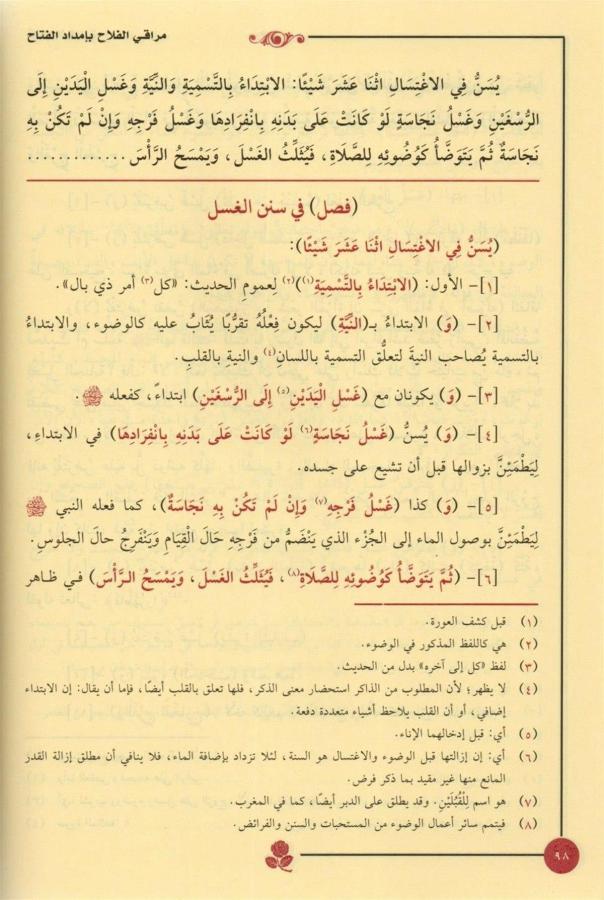 مراقي الفلاح بإمداد الفتاح
يُسَنُّ فِي الاغْتِسَالِ اثْنَا عَشَرَ شَيْئًا: الابْتِدَاءُ بِالتَّسْمِيَةِ وَالنِّيَّةِ وَغَسْلِ الْيَدَيْنِ إِلَى
الرُّسْغَيْنِ وَغَسْلُ نَجَاسَةٍ لَوْ كَانَتْ عَلَى بَدَنِهِ بِانْفِرَادِهَا وَغَسْلُ فَرْجِهِ وَإِنْ لَمْ تَكُنْ بِهِ
نَجَاسَةٌ ثُمَّ يَتَوَضَّأُ كَوُضُوئِهِ لِلصَّلَاةِ، فَيُثَلِّثُ الغَسْلَ، وَيَمْسَحُ الرَّأْسَ .............
(فصل) في سنن الغسل
(يُسَنُّ فِي الاغْتِسَالِ اثْنَا عَشَرَ شَيْئًا):
[١]- الأول: (الابْتِدَاءُ بِالتَّسْمِيَةِ(١))(٢) لِعمومِ الحديث: «كل(٣) أمر ذي بال».
[٢]- (وَ) الابتداء بـ(النِّيَّةِ) ليكون فِعْلُهُ تقرُّبًا يُثَابُ عليه كالوضوء، والابتداءُ
بالتسمية يُصاحب النيةَ لتعلُّق التسمية باللسانِ(٤) والنيةِ بالقلبِ.
[٣]- (وَ) يكونان مع (غَسْلِ الْيَدَيْنِ(٥) إِلَى الرُّسْغَيْنِ) ابتداءً، كفعله ﷺ.
[٤]- (وَ) يُسنُّ (غَسْلُ نَجَاسَةٍ(٦) لَوْ كَانَتْ عَلَى بَدَنِهِ بِانْفِرَادِهَا) في الابتداءِ،
لِيَطْمَئِنَّ بزوالها قبل أن تشيع على جسده.
[٥]- (وَ) كذا (غَسْلُ فَرْجِهِ(٧) وَإِنْ لَمْ تَكُنْ بِهِ نَجَاسَةٌ)، كما فعله النبي ﷺ
لِيَطْمَئِنَّ بوصول الماء إلى الجُزْء الذي يَنْضَمُّ من فَرْجِهِ حَالَ القِيَامِ وَيَنْفَرِجُ حالَ الجلوسِ.
[٦]- (ثُمَّ يَتَوَضَّأُ كَوُضُوئِهِ لِلصَّلَاةِ(٨)، فَيُثَلِّثُ الغَسْلَ، وَيَمْسَحُ الرَّأْسَ) في ظاهر
(١) قبل كشف العورة.
(٢) هي كاللفظ المذكور في الوضوء.
(٣) لفظ «كل إلى آخره» بدل من الحديث.
(٤) لا يظهر؛ لأن المطلوب من الذاكر استحضار معنى الذكر، فلها تعلق بالقلب أيضًا، فإما أن يقال: إن الابتداء
إضافي، أو أن القلب يلاحظ أشياء متعددة دفعة.
(٥) أي: قبل إدخالهما الإناء.
(٦) أي: إن إزالتها قبل الوضوء والاغتسال هو السنة، لئلا تزداد بإضافة الماء، فلا ينافي أن مطلق إزالة القدر
المانع منها غير مقيد بما ذكر فرض.
(٧) هو اسم لِلْقُبُلَيْنِ. وقد يطلق على الدبر أيضًا، كما في المغرب.
(٨) فيتمم سائر أعمال الوضوء من المستحبات والسنن والفرائض.
٩٨